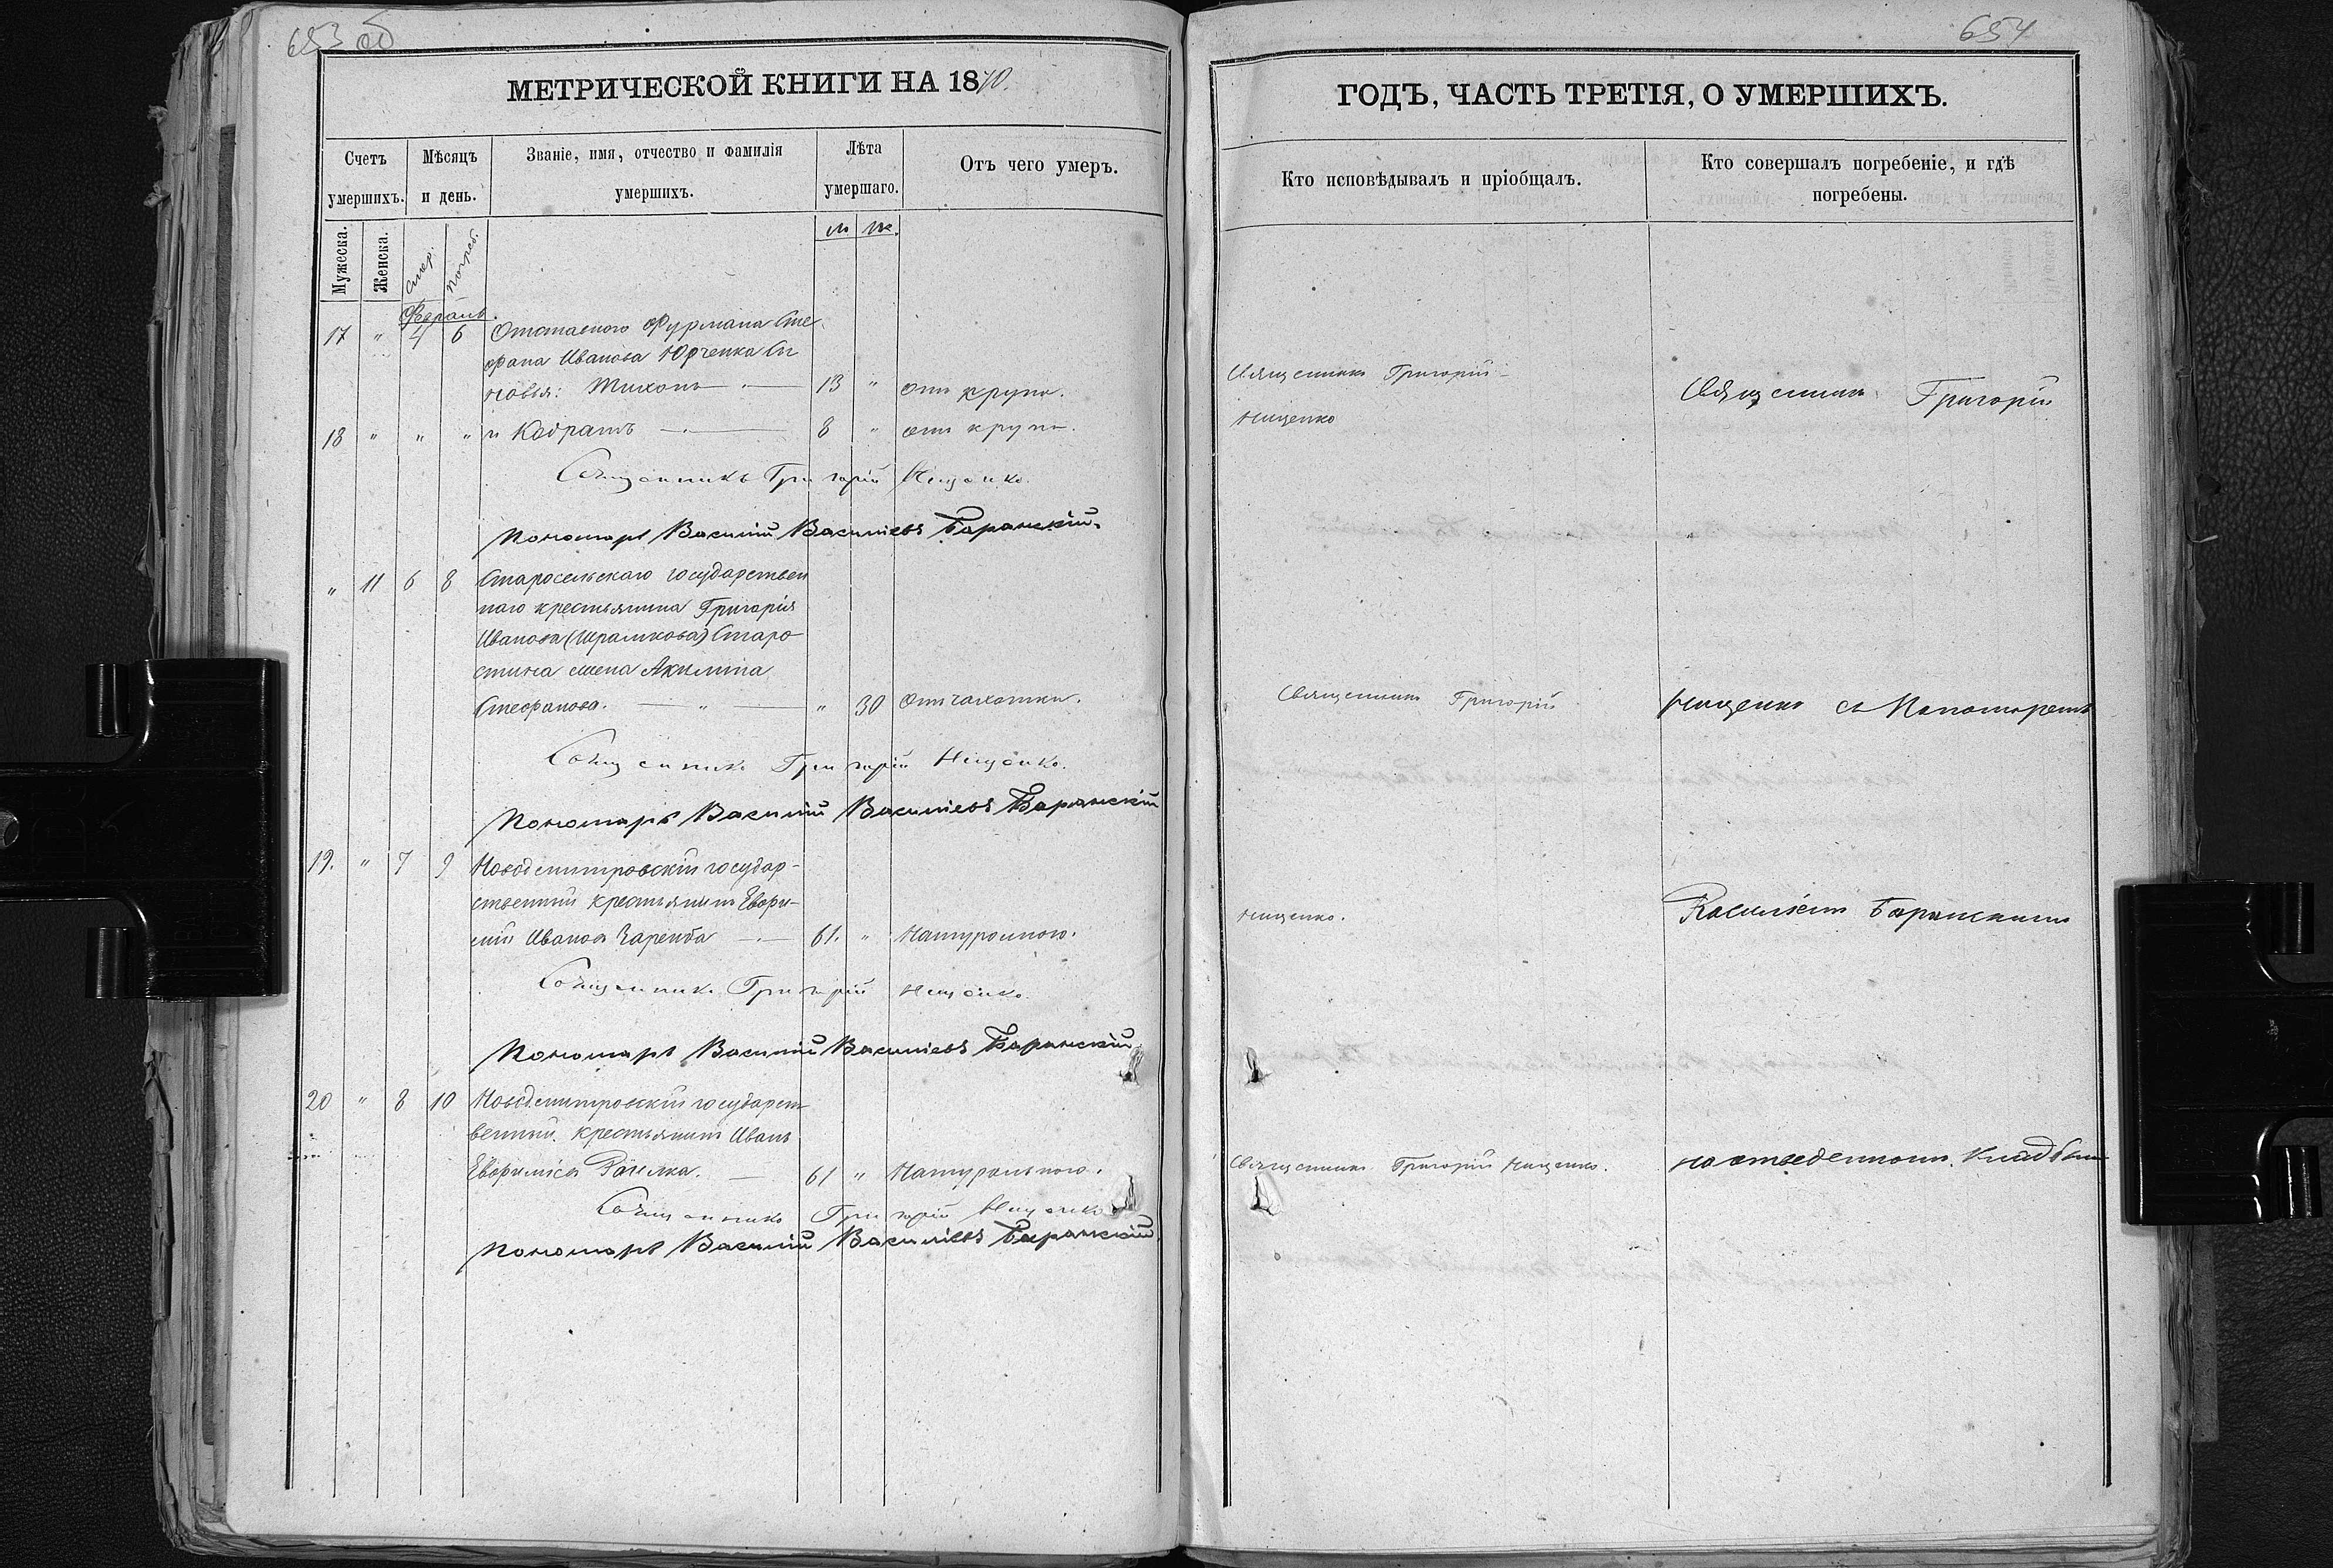 683 об
МЕТРИЧЕСКОЙ КНИГИ НА 1870.
Счетъ умершихъ.
Мѣсяцъ и день.
Званіе, имя, отчество и фамилія умершихъ.
Лѣта умершаго.
Отъ чего умеръ.
Мужеска.
Женска.
Смер.
Погреб.
м ж.
17 " 4 6 Отставного Фурмана Сте
фана Иванова Юрченка Сы
новья: Тихонъ — 13 " отъ крупа.
18 " " " и Кодратъ — 8 " отъ крупа.
Священникъ Григорій Нищенко.
Пономарь Василій Васильевъ Баранскій.
" 11 6 8 Старосельскаго государствен
наго крестьянина Григорія
Иванова (Шрамкова) Старо
стина жена Акилина
Стефанова. — " — " 30 Отъ чахотки.
Священникъ Григорій Нищенко.
Пономарь Василій Васильевъ Баранскій
19. " 7 9 Новодмитровскій государ-
ственный крестьянинъ Евфи-
мій Ивановъ Заремба — 61. " Натуральною.
Священникъ Григорій Нищенко.
Пономарь Василій Васильевъ Баранскій
20 " 8 10 Новодмитровскій государст
венный крестьянинъ Иванъ
Евфиміевъ — 61 " Натуральною.
Священникъ Григорій Нищенко
Пономарь Василій Васильевъ Баранскій.
654
ГОДЪ, ЧАСТЬ ТРЕТІЯ, О УМЕРШИХЪ.
Кто исповѣдывалъ и пріобщалъ.
Кто совершалъ погребеніе, и гдѣ погребены.
Священникъ Григорій
Нищенко
Священникъ Григорій
Священникъ Григорій
Нищенко съ Пономаремъ
Нищенко.
Василіемъ Баранскимъ
Священникъ Григорій Нищенко.
на отведенномъ кладбищ